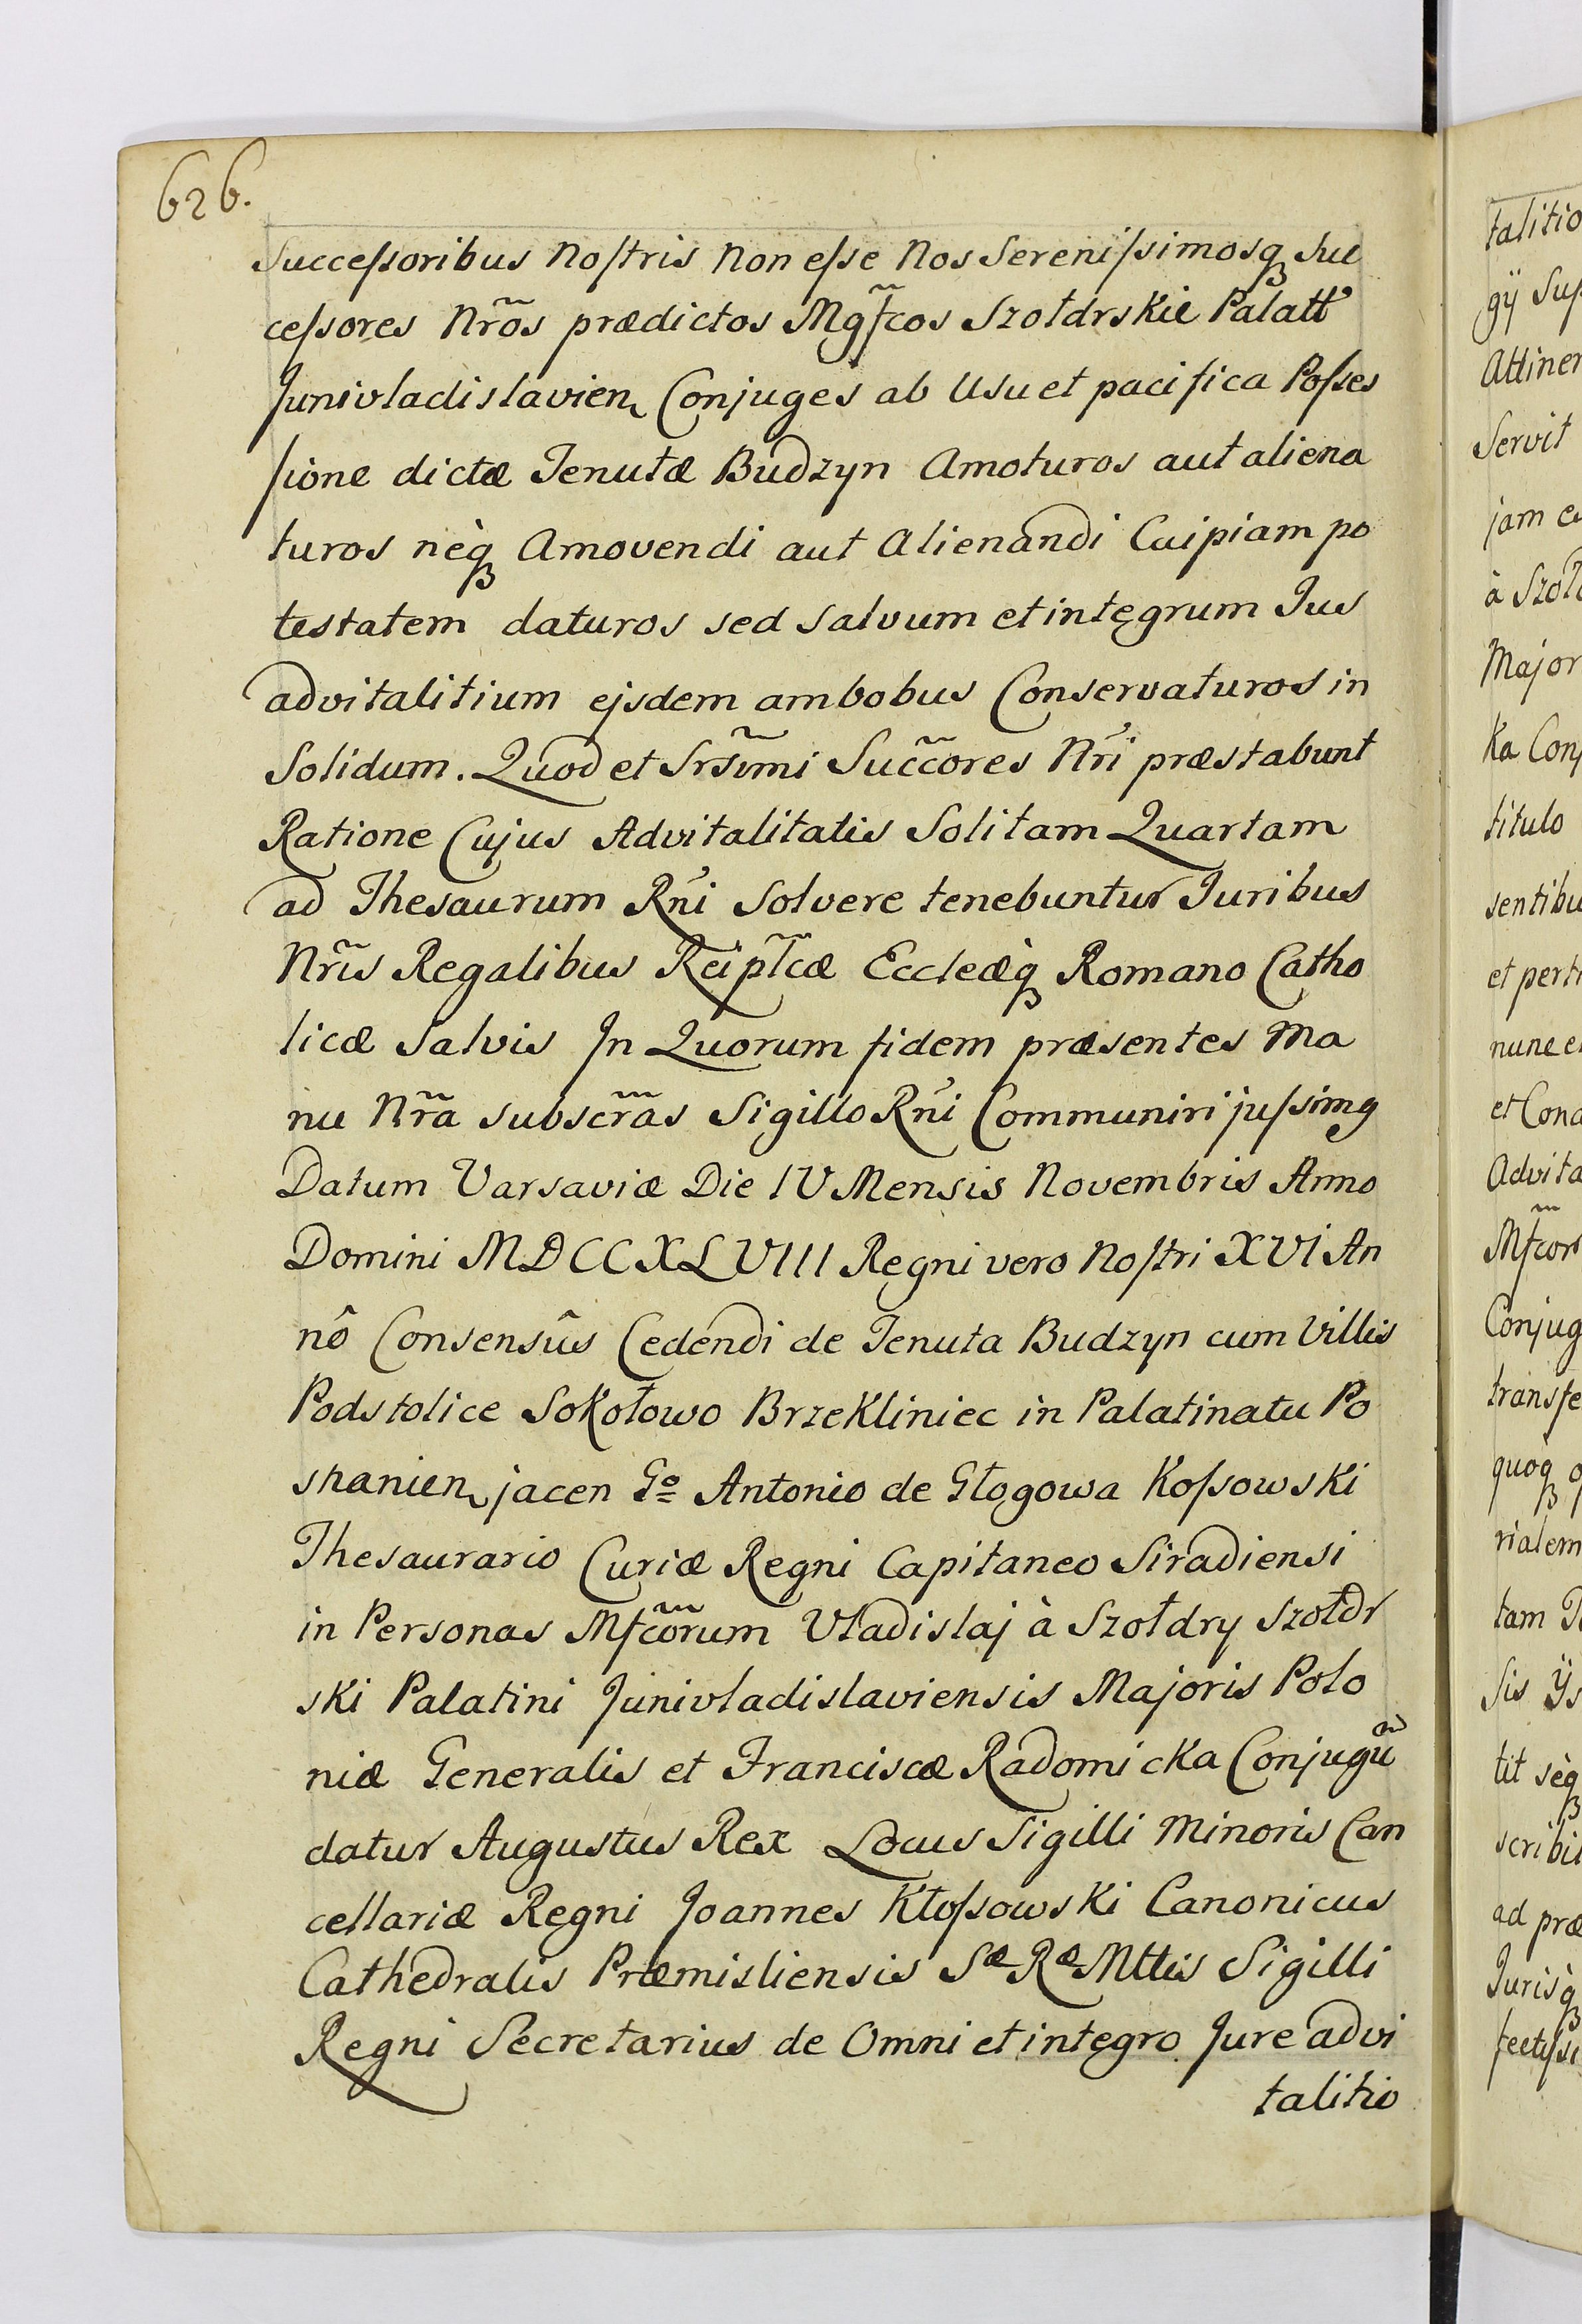 626.
Succeſsoribus Noſtris Non eſse Nos Sereniſsimosq₃ Suc
ceſsores Nr̃os prædictos Mgf̃cos Szołdrskie Palatt
Junivladislavien Conjuges ab Usu et pacifica Poſses
ſione dictæ Tenutæ Budzyn Amoturos aut aliena
turos nèq₃ Amovendi aut Alienandi Cuipiam po
testatem daturos sed salvum et integrum Jus
advitalitium ejsdem ambobus Conservaturos in
Solidum. Quod et Srs̃imi Succ̃ores Nr̃i præstabunt
Ratione Cujus Advitalitatis Solitam Quartam
ad Thesaurum Rñi Solvere tenebuntur Juribus
Nr̃is Regalibus Reipl̃cæ Eccleæq̀₃ Romano Catho
licæ Salvis In Quorum fidem præsentes Ma
nu Nr̃a subscr̃as Sigillo Rñi Communiri juſsimg
Datum Varsaviæ Die IV Mensis Novembris Anno
Domini MDCCXLVIII Regni vero Noſtri XVI An
nô Consensûs Cedendi de Tenuta Budzyn cum Villis
Podstolice Sokołowo Brzekliniec in Palatinatu Po
snanien jacen Gº Antonio de Głogowa Koſsowski
Thesaurario Curiæ Regni Capitaneo Siradiensi
in Personas Mfc̃orum Vladislaj à Szołdry Szołdr
ski Palatini Junivladislaviensis Majoris Polo
niæ Generalis et Franciscæ Radomicka Conjugũ
datur Augustus Rex Locus Sigilli Minoris Can
cellariæ Regni Joannes Kłoſsowski Canonicus
Cathedralis Præmisliensis Sæ Ræ Mttis Sigilli
Regni Secretarius de Omni et integro Jure advi
talitio
talitio
gÿ
Servit
jam
à
Major
ka
titulo
et
et
quoq₃
tam
Sis
tit sèq₃
ad
Jurisq̀₃